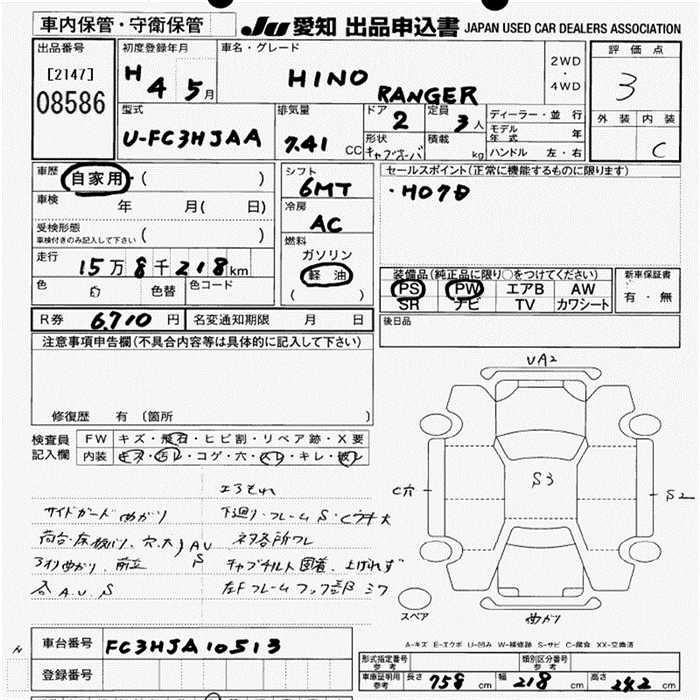 車内保管・守衛保管
JU 愛知 出品申込書 JAPAN USED CAR DEALERS ASSOCIATION
出品番号
[2147]
08586
初度登録年月
H 4 5月
車名・グレード
HINO RANGER
2WD
・
4WD
評価点
3
外装 内装
C
型式
U-FC3HJAA
排気量
7.41 CC
ドア
2
定員
3人
形状
キャブオーバ
積載
kg
ディーラー・並行
モデル年式 年
ハンドル 左・右
車歴
自家用・( )
車検
年 月( 日)
受検形態
車検付きのみ記入して下さい ( )
走行
15万8千218km
色
白
色替
色コード
シフト
6MT
冷房
AC
燃料
ガソリン
軽油
( )
セールスポイント(正常に機能するものに限ります)
・HO7D
装備品(純正品に限り○をつけてください)
PS PW エアB AW
SR ナビ TV カワシート
新車保証書
有・無
R券 6,710円
名変通知期限 月 日
後日品
注意事項申告欄(不具合内容等は具体的に記入して下さい)
修復歴 有(箇所 )
検査員記入欄
FW キズ・飛石・ヒビ割・リペア跡・X要
内装 キズ・汚レ・コゲ・穴・スレ・キレ・破レ
サイドガード 曲がり
荷台・床板バリ、穴大
AU
S
曲がり、前立
A.U.S
下廻り・フレーム S・C
ネタ各所ワレ
キャブチルト固着、上がれず
左Fフレームフック部 シワ
UA2
C穴
S3
S2
曲がり
スペア
A-キズ E-エクボ U-凹み W-補修跡 S-サビ C-腐食 XX-交換済
車台番号
FC3HJA10513
登録番号
形式指定番号
参考
類別区分番号
参考
車庫証明用
参考
長さ 758 cm
幅 218 cm
高さ 242 cm